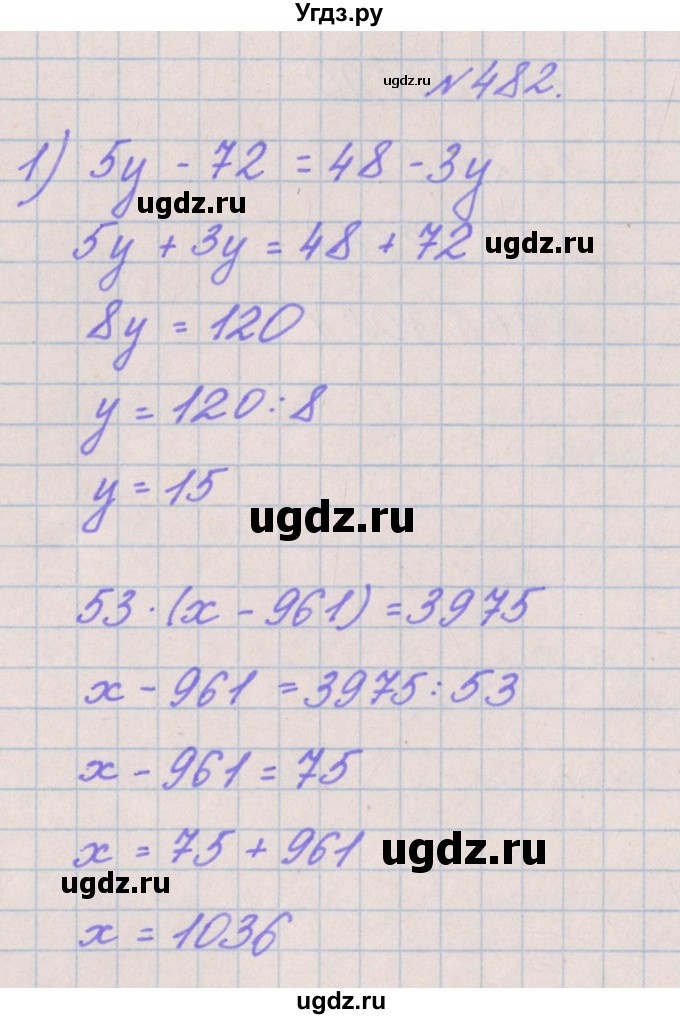 Угдз.ру
ugdz.ru № 482.
1) 5y - 72 = 48 - 3y
ugdz.ru
5y + 3y = 48 + 72 ugdz.ru
8y = 120
y = 120 : 8
y = 15
ugdz.ru
53 · (x - 961) = 3975
x - 961 = 3975 : 53
x - 961 = 75
x = 75 + 961 ugdz.ru
ugdz.ru
x = 1036
ugdz.ru